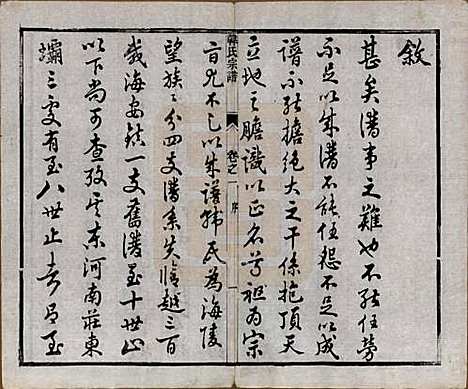 敘
甚矣譜事之難也不能任勞
不足以成譜不能任怨不足以成
譜不能擔絕大之干係抱頂天
立地之膽識以正名尊祖為宗
旨尤不足以成譜韓氏為海陵
韓氏宗譜 卷之一 序 一
望族之分四支譜系失修越三百
載海安鎮一支舊譜至十世止
以下尚可查攷其東河南莊東
壩三支有至八世止者有至